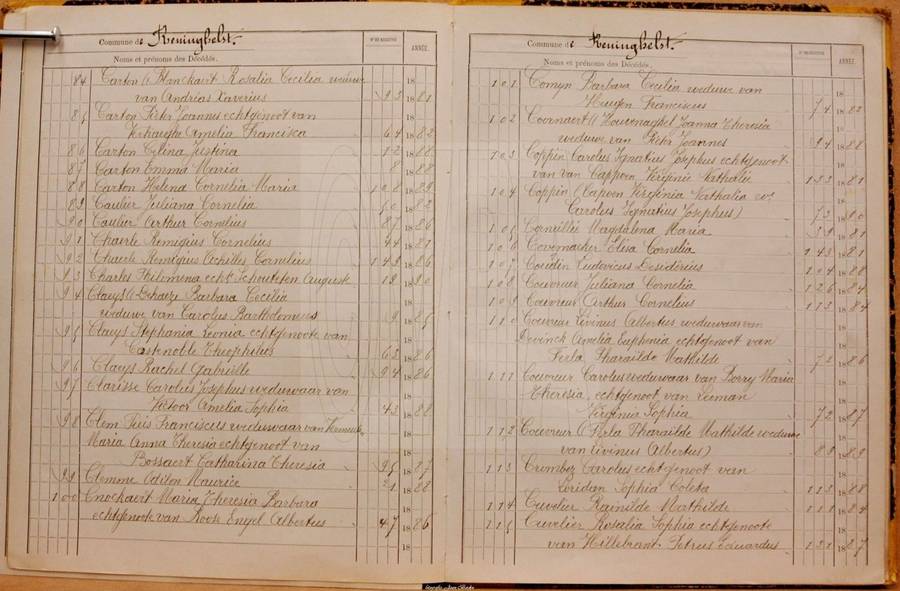 Commune de Reninghelst.
Nos et prénoms des Décédés.
ANNÉE.
18
84 Carton (/ Blanckaert Rosalia Cecilia weduwe
van Andréas Xaverius 93 1881
85 Carton Pieter Joannes echtgenoot van
Verhaeghe Amelia Francisca 64 1882
86 Carton Celina Justina 12 1888
87 Carton Emma Maria 8 1888
88 Carton Helena Cornelia Maria 108 1889
89 Caulier Juliana Cornelia 50 1882
90 Caulier Arthur Cornelius 87 1886
91 Chaerle Remigius Cornelius 44 1881
92 Chaerle Remigius Achilles Cornelius 143 1886
93 Charles Philomena echt Schouteten August 1880
94 Claeys (/ Dehaeze Barbara Cecilia
weduwe van Carolus Bartholomeus 9 1885
95 Claeys Stephania Leonia echtgenoote van
Castenoble Theophilus 62 1886
96 Claeys Rachel Gabrielle 94 1886
97 Clarisse Carolus Josephus weduwaar van
Amelia Sophia 43 1888
98 Clem Pius Franciscus weduwaar van
Maria Anna Theresia echtgenoot van
Bossaert Catharina Theresia 95 1887
99 Clemme Odilon Maurice 21 1888
100 Cnockaert Maria Theresia Barbara
echtgenoote van Roose Engel Albertus 47 1886
18
Commune de Reninghelst.
Noms et prénoms des Décédés.
ANNÉE.
18
101 Comyn Barbara Cecilia weduwe van
Huyghe Franciscus 74 1882
102 Coornaert (/ Houvenaghel Joanna Theresia
weduwe van Pieter Joannes 94 1888
103 Coppin Carolus Ignatius Josephus echtgenoot
van van Cappoen Virginie Nathalie 133 1881
104 Coppin (/ Capoen Virginia Nathalia we.
Carolus Ignatius Josephus) 72 1880
105 Cornillie Magdalena Maria 39 1881
106 Covemacker Elisa Cornelia 143 1881
107 Coudin Ludovicus Desiderius 104 1888
108 Couvreur Juliana Cornelia 126 1884
109 Couvreur Arthur Cornelius 113 1884
110 Couvreur Livinus Albertus weduwaar van
Devinck Amelia Euphenia echtgenoot van
Perla Pharailde Mathilde 72 1886
111 Couvreur Carolus weduwaar van Berry Maria
Theresia, echtgenoot van Leeman
Virginia Sophia 72 1887
112 Couvreur (/ Perla Pharailde Mathilde weduwe
van Livinus Albertus) 83 1883
113 Crombez Carolus echtgenoot van
Loridan Sophia Coleta 113 1888
114 Cuvelier Rainilde Mathilde 111 1884
115 Cuvelier Rosalia Sophia echtgenoote
van Hillebrant Petrus eduardus 121 1887